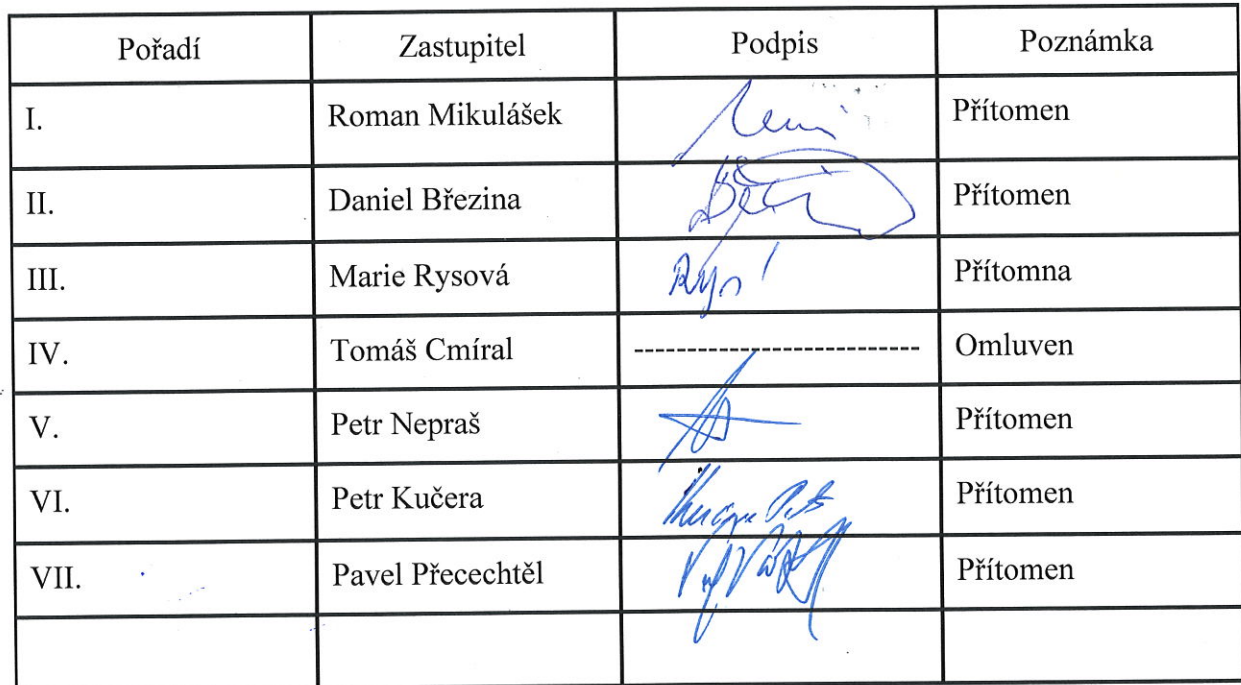 Pořadí Zastupitel Podpis Poznámka
I. Roman Mikulášek Přítomen
II. Daniel Březina Přítomen
III. Marie Rysová Přítomna
IV. Tomáš Cmíral ------------------------- Omluven
V. Petr Nepraš Přítomen
VI. Petr Kučera Přítomen
VII. Pavel Přecechtěl Přítomen